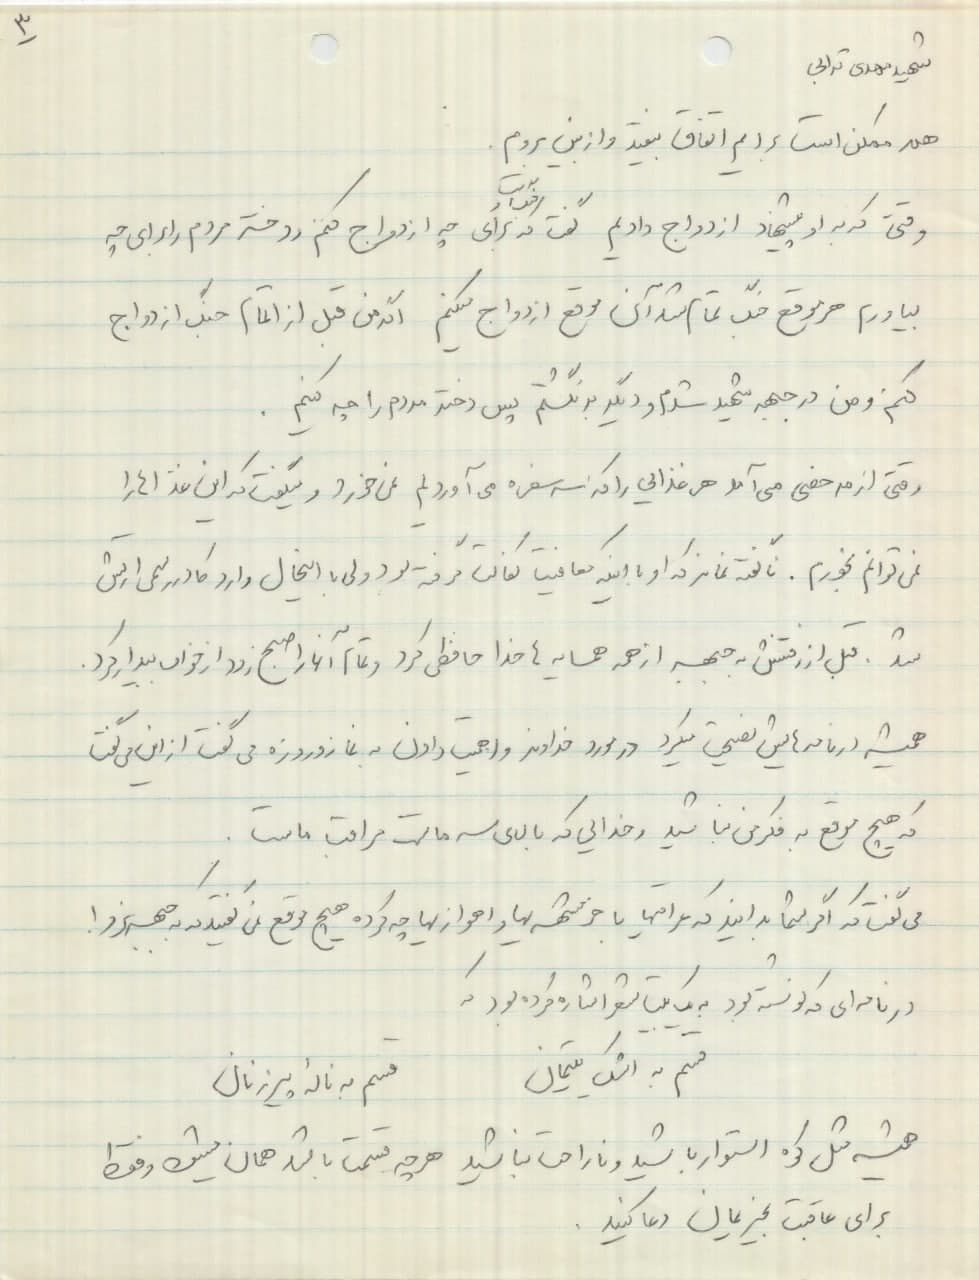 ۳
شهید مهدی ترابی
هم ممکن است برایم اتفاق بیفتد و از بین بروم.
وقتی که به او پیشنهاد ازدواج دادیم گفت که برای چه ازدواج کنم و دختر مردم را برای چه
بیاورم هر موقع جنگ تمام شد آن موقع ازدواج میکنم اگر من قبل از اتمام جنگ ازدواج
کنم و من در جبهه شهید شدم و دیگر برنگشتم پس دختر مردم را چه کنم.
وقتی از مرخصی می آمد هر غذایی را که سر سفره می آوردیم نمی خورد و میگفت که این غذاها را
نمی توانم بخورم. ناگفته نماند که او با اینکه معافیت کفالت گرفته بود ولی با اینحال وارد کادر رسمی ارتش
شد. قبل از رفتنش به جبهه از همه همسایه ها خدا حافظی کرد و تمام آنها را صبح زود از خواب بیدار کرد.
همیشه در نامه هایش نصیحت میکرد در مورد خداوند و اهمیت دادن به نماز و روزه می گفت از این می گفت
که هیچ موقع به فکر من نباشید و خدایی که بالای سر ماست مراقب ماست.
می گفت که اگر شما بدانید که عراقیها با خرمشهریها و اهوازیها چه کرده هیچ موقع نمی گفتید که به جبهه نرو!
در نامه ای که نوشته بود به یک بیت شعر اشاره کرده بود که
قسم به اشک یتیمان قسم به نالۀ پیرزنان
همیشه مثل کوه استوار باشید و ناراحت نباشید هر چه قسمت باشد همان میشود فقط
برای عاقبت بخیریمان دعا کنید.